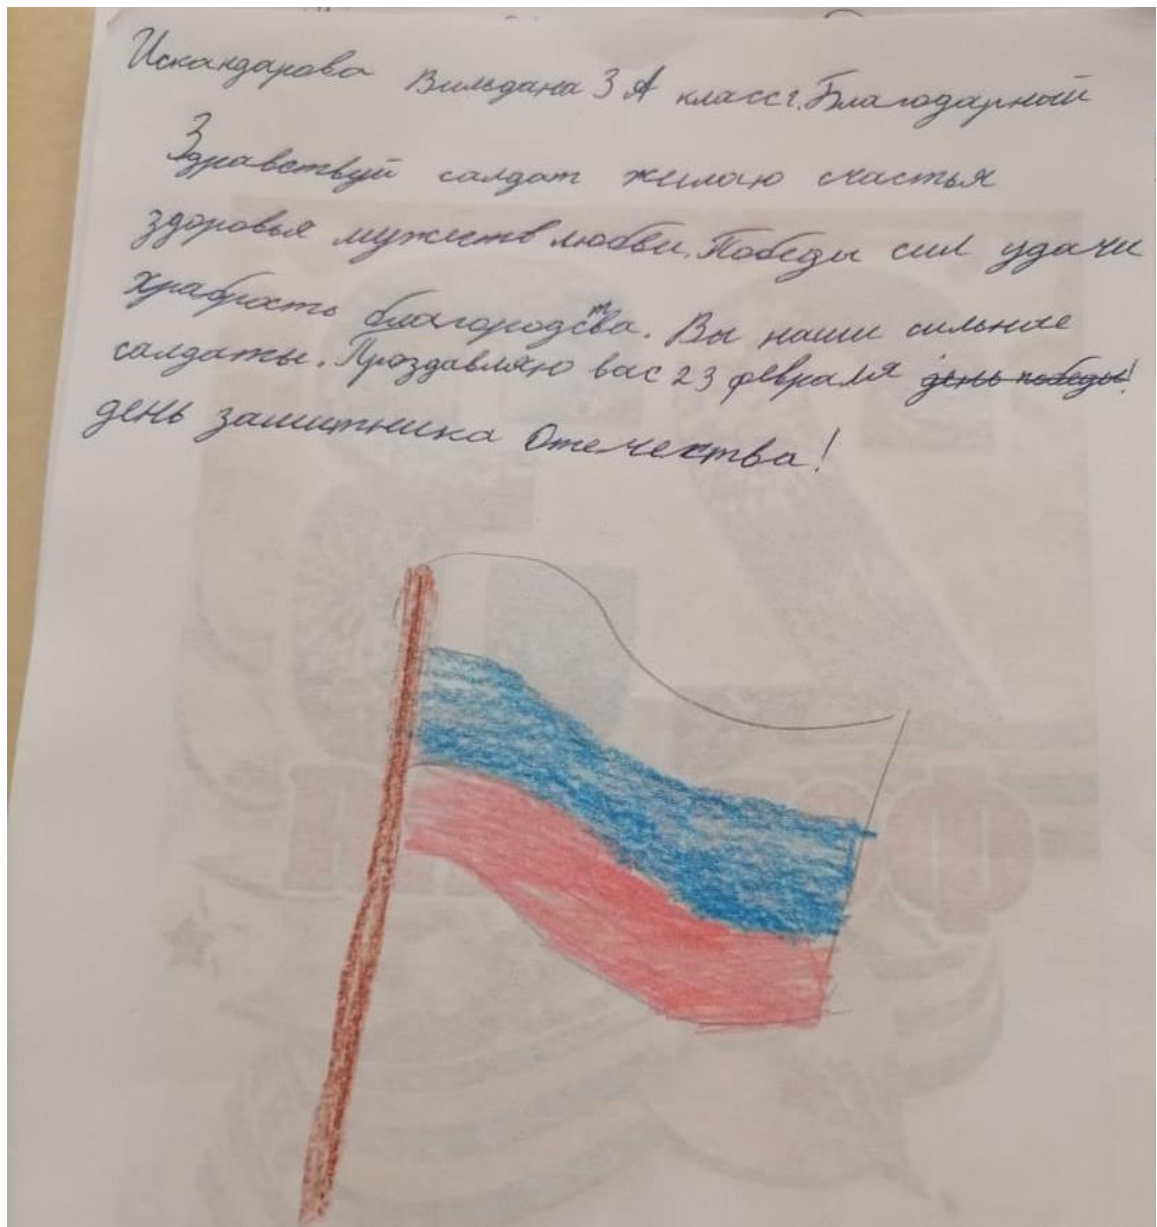 Искандарова Вильдана 3 А класс г. Благодарный
Здравствуй салдат жилаю счастья
здоровья мужеств любви. Победы сил удачи
храбрость благородства. Вы наши сильные
салдаты. Проздавляю вас 23 февраля день победы!
день защитника Отечества!